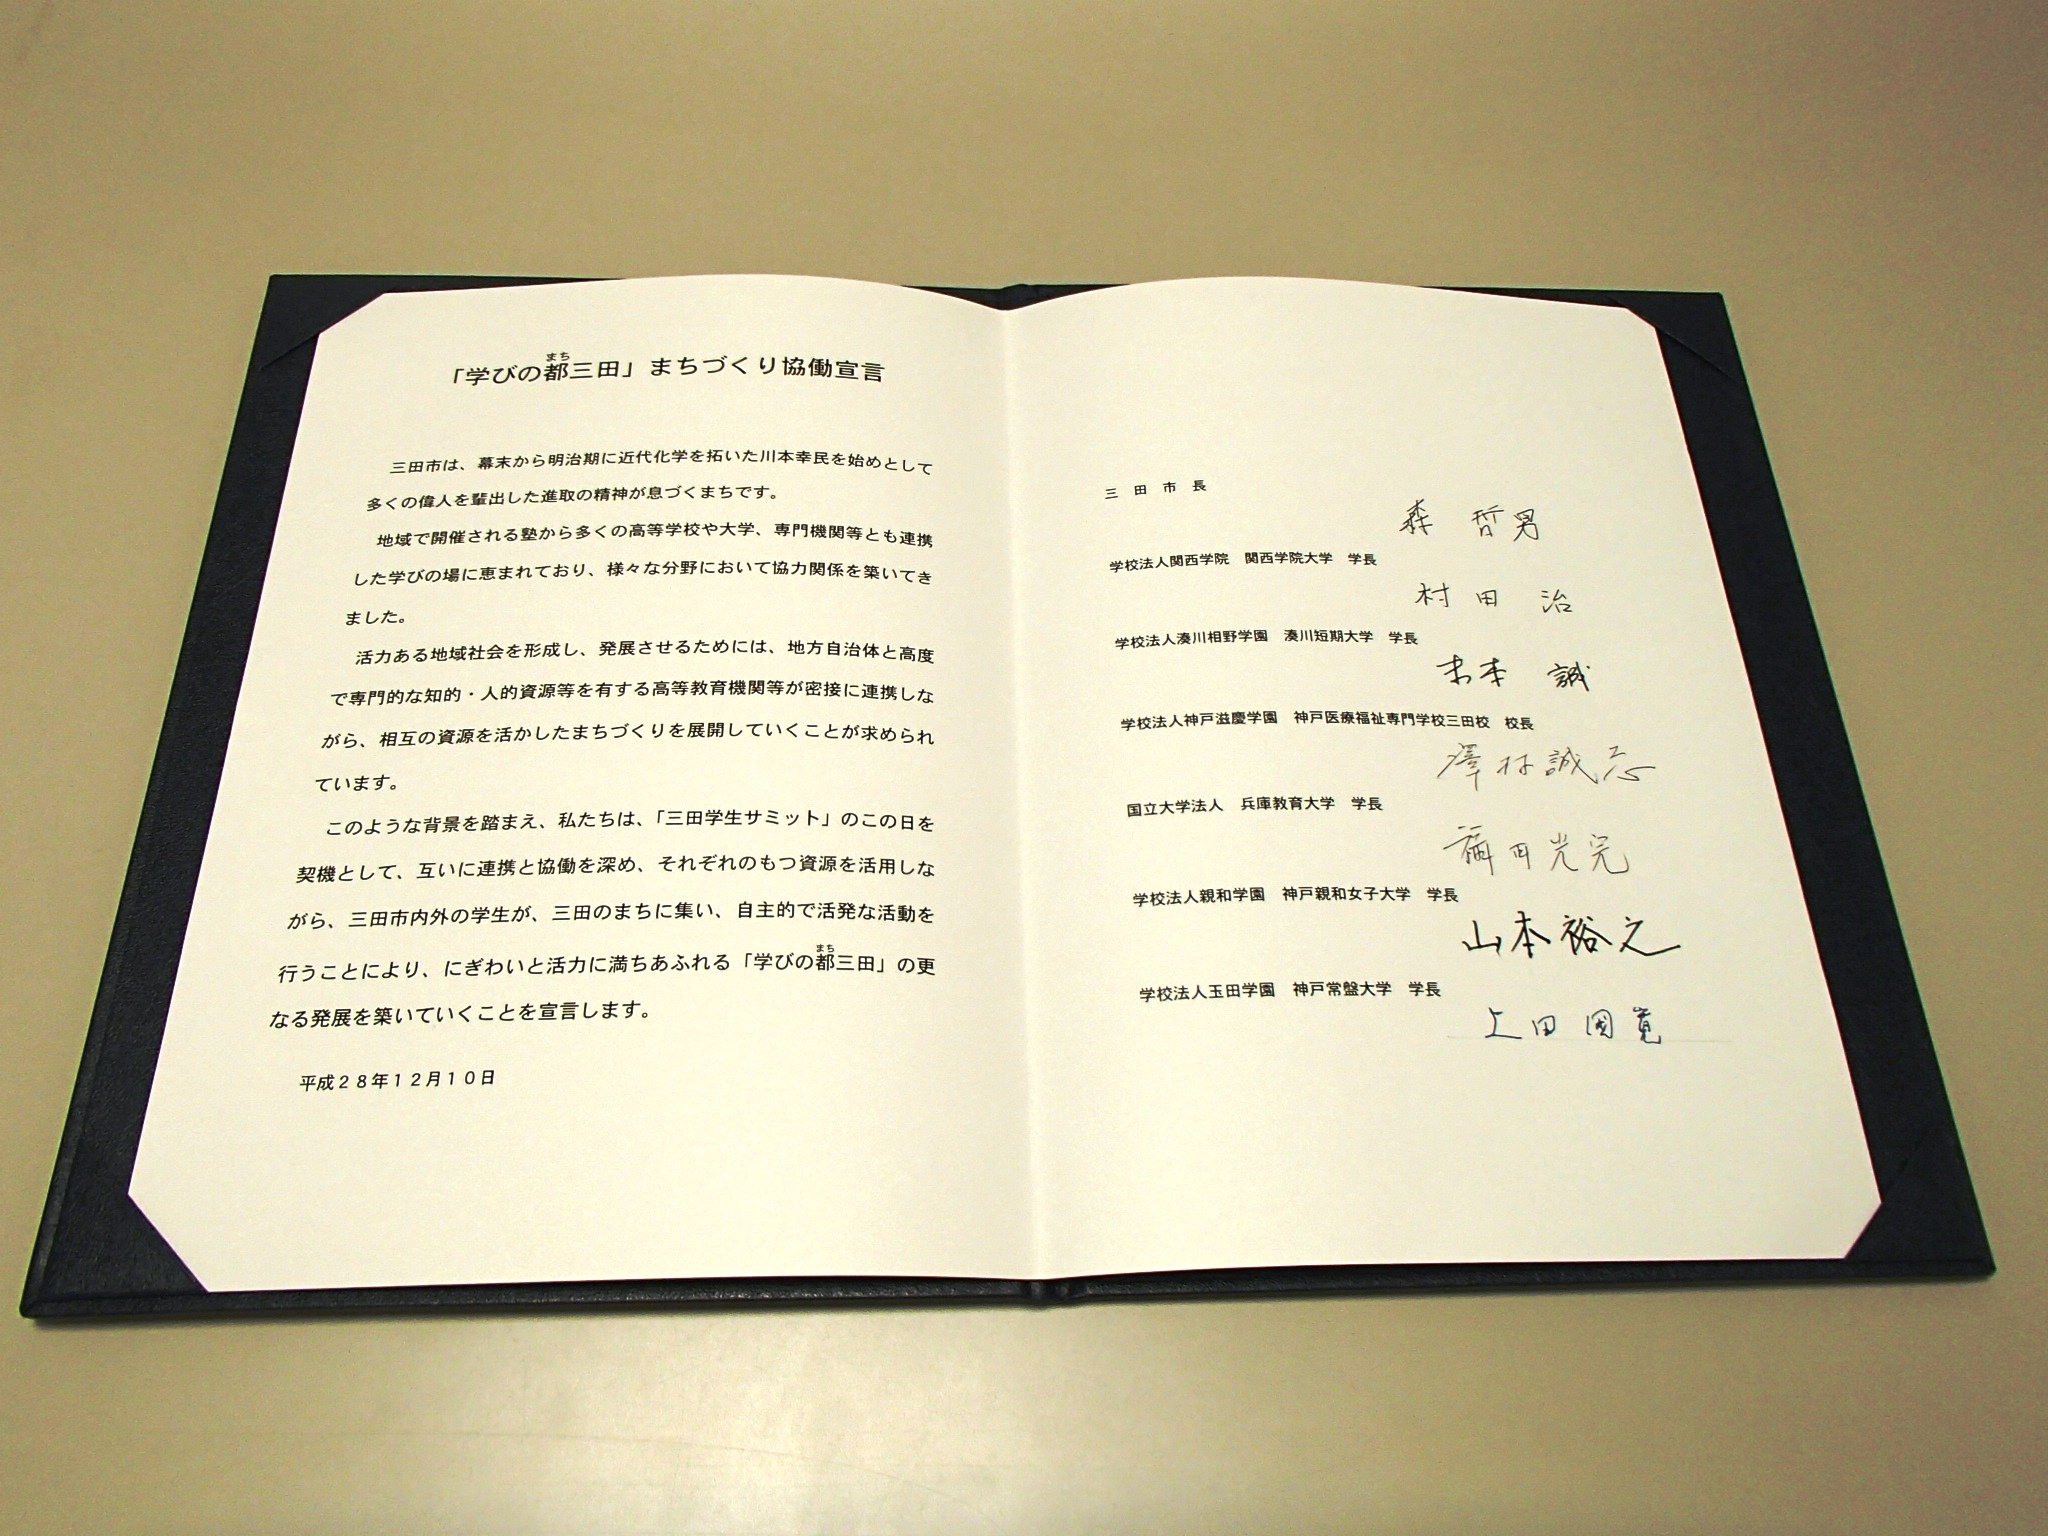 「学びの都三田」まちづくり協働宣言
まち
三田市は、幕末から明治期に近代化学を拓いた川本幸民を始めとして
多くの偉人を輩出した進取の精神が息づくまちです。
地域で開催される塾から多くの高等学校や大学、専門機関等とも連携
した学びの場に恵まれており、様々な分野において協力関係を築いてき
ました。
活力ある地域社会を形成し、発展させるためには、地方自治体と高度
で専門的な知的・人的資源等を有する高等教育機関等が密接に連携しな
がら、相互の資源を活かしたまちづくりを展開していくことが求められ
ています。
このような背景を踏まえ、私たちは、「三田学生サミット」のこの日を
契機として、互いに連携と協働を深め、それぞれのもつ資源を活用しな
がら、三田市内外の学生が、三田のまちに集い、自主的で活発な活動を
まち
行うことにより、にぎわいと活力に満ちあふれる「学びの都三田」の更
なる発展を築いていくことを宣言します。
平成２８年１２月１０日
三田市長
森 哲男
学校法人関西学院　関西学院大学　学長
村田 治
学校法人湊川相野学園　湊川短期大学　学長
末本 誠
学校法人神戸滋慶学園　神戸医療福祉専門学校三田校　校長
澤村誠志
国立大学法人　兵庫教育大学　学長
福田光完
学校法人親和学園　神戸親和女子大学　学長
山本裕之
学校法人玉田学園　神戸常盤大学　学長
上田國寛